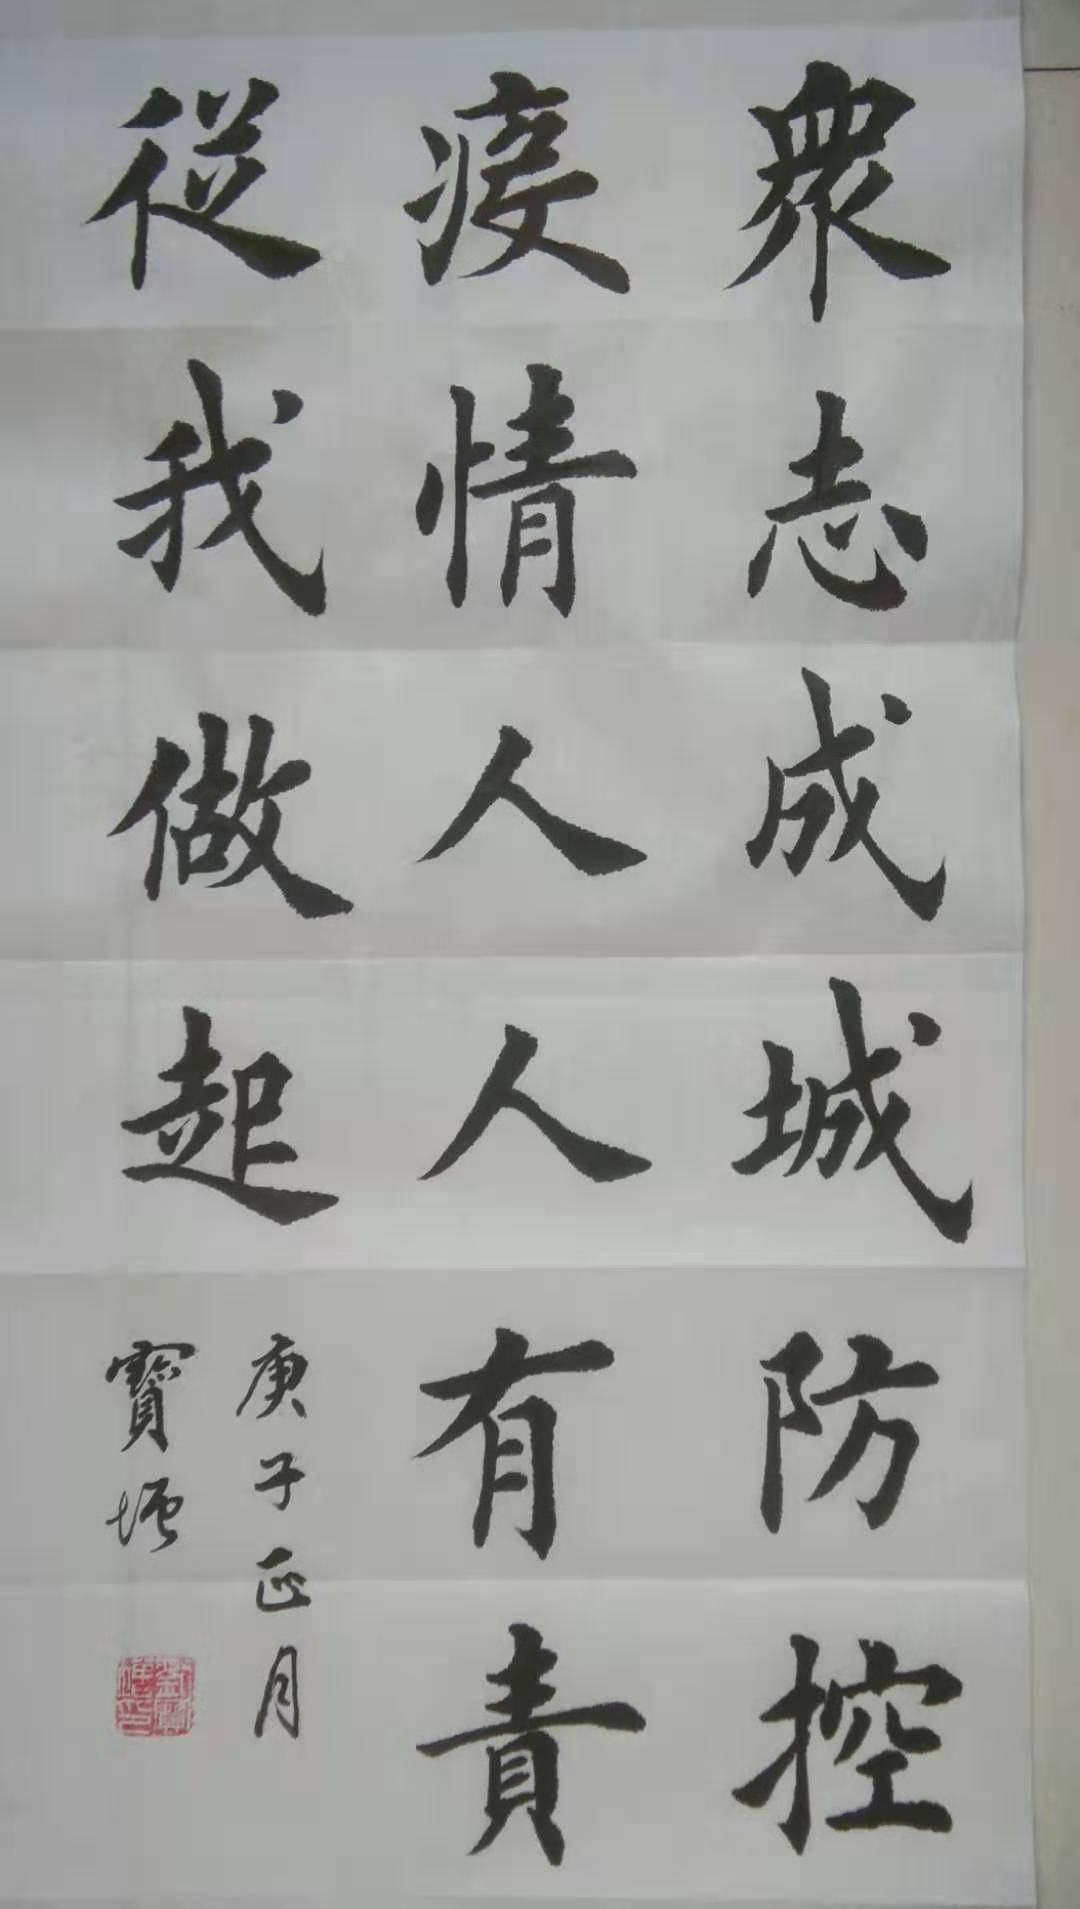 衆志成城防控
疫情人人有責
從我做起
庚子正月
寶增
劉寶增印